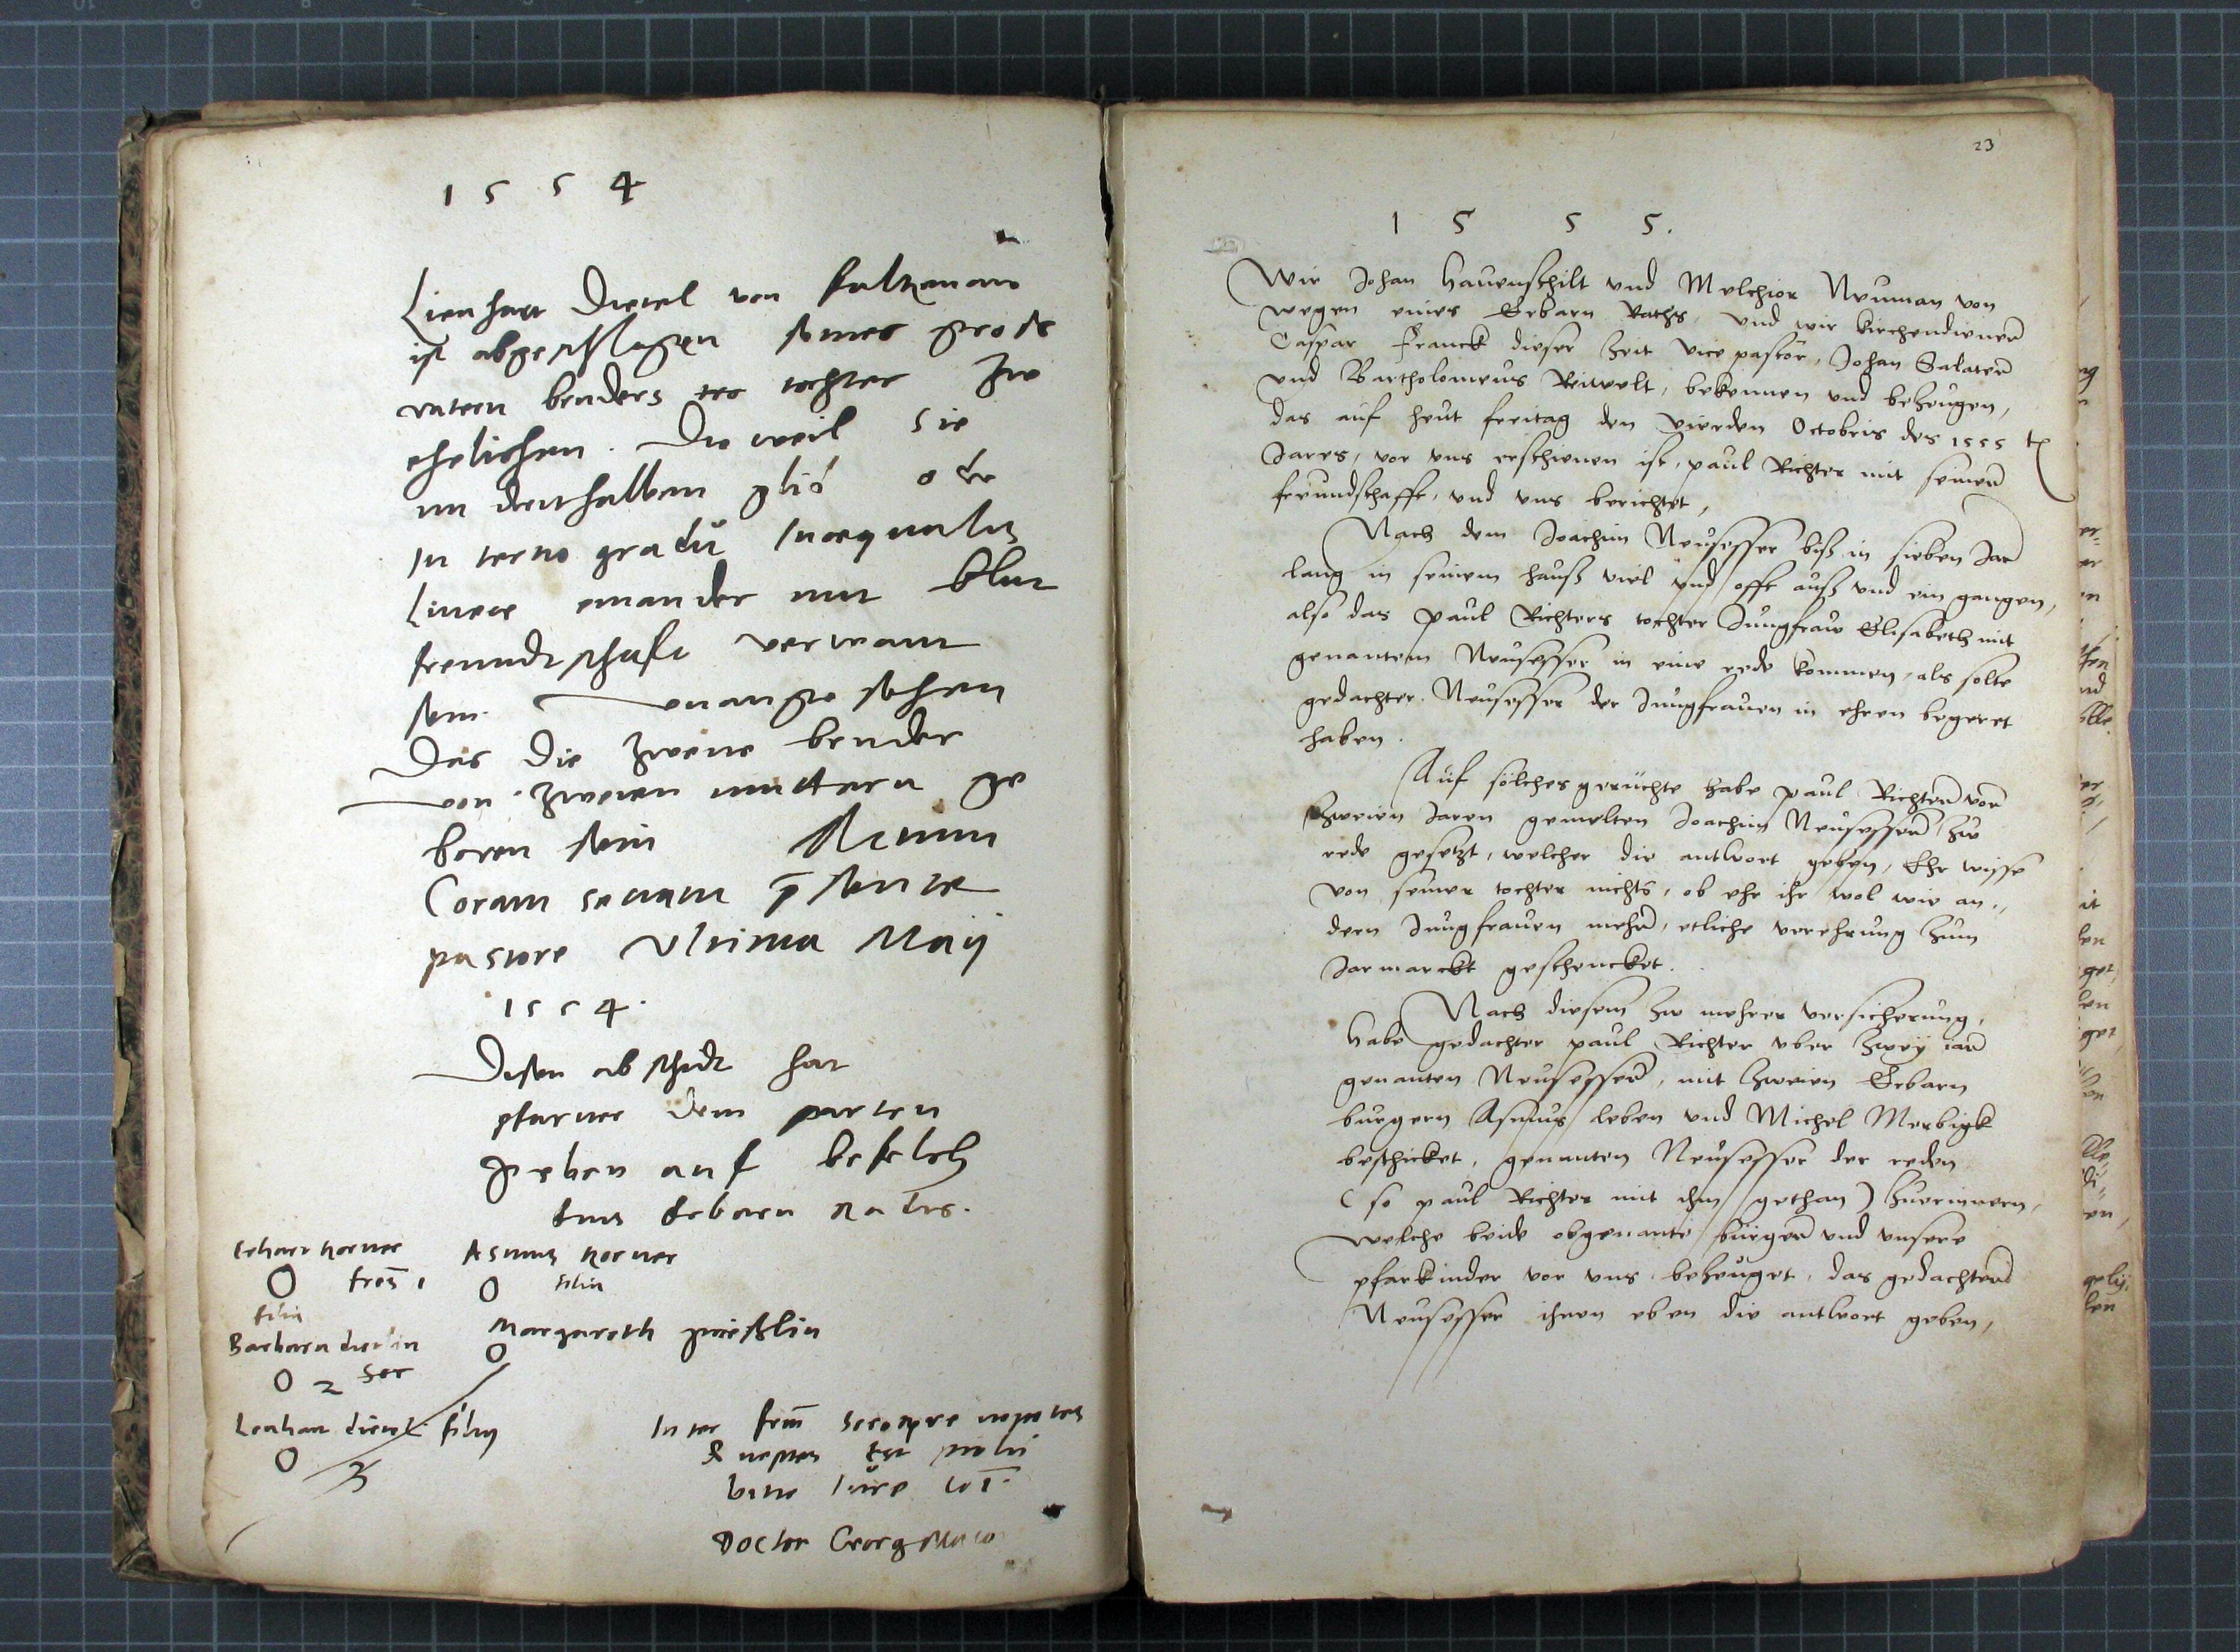 1 5 5 4
Lienhart Dietel von
ist abgeschlagen seines gros
vatern bruders tochter zu
ehelichen. Die weil sie
im dritthalben glid oder
In tertio gradu Inaequalis
Lineae einander mit blut
freundtschaft verwant
sein. vnangesehen
Das die zwene bruder
von zweien muttern ge
boren sein Actum
Coram senatu p̄sente
pastore Vltima Maij
1 5 5 4.
Disen abschidt hat
pfarner dem parten
geben auf befelch
eins erbaren rades.
Erhart Korner Asmus Korner
O O filia
filia
Barbara Margareth
O 2 O
Lenhart filij
O 3
Inter
Doctor Georg
23
1 5 5 5.
Wir Johan Hauenschilt und Melchior Neuman von
wegen eines Erbarn Raths, und wir kirchendiener
Caspar Franck dieser zeit vice pastor, Johan Salater
und Bartholomeus Reiwelt, bekennen und bezeugen,
das auf heut freitag den vierden Octobris des 1555 t
Jares, vor uns erschienen ist, paul Richter mit seiner
freundschafft, und uns berichtet,
Nach dem Joachim Neusesser biß in sieben Jar
lang in seinem hauß viel und offt auß und ein gangen,
also das paul Richters tochter Jungfraw Elisabeth mit
genantem Neusesser in eine rede kommen, als solte
gedachter Neusesser der Jungfrauen in ehren begeret
haben.
Auf solches geruchte habe paul Richter vor
zweien Jaren gemelten Joachim Neusesser zu
rede gesetzt, welcher die antwort geben, Ehr wisse
von seiner tochter nichts, ob ehr ihr wol wie an,,
dern Jungfrauen mehr, etliche verehrung zum
Jarmarckt geschencket.
Nach diesem zu mehrer versicherung,
habe gedachter paul Richter uber zwey iar
genanten Neusesser, mit zweien Erbarn
burgern Asmus leben und Michel Merbigk
beschicket, genanten Neusesser der reden
(so paul Richter mit ihm gethan) zuerinnern,
welche beide obgenante burger und unsere
pfarkinder vor uns bezeuget, das gedachter
Neusesser ihnen eben die antwort geben,